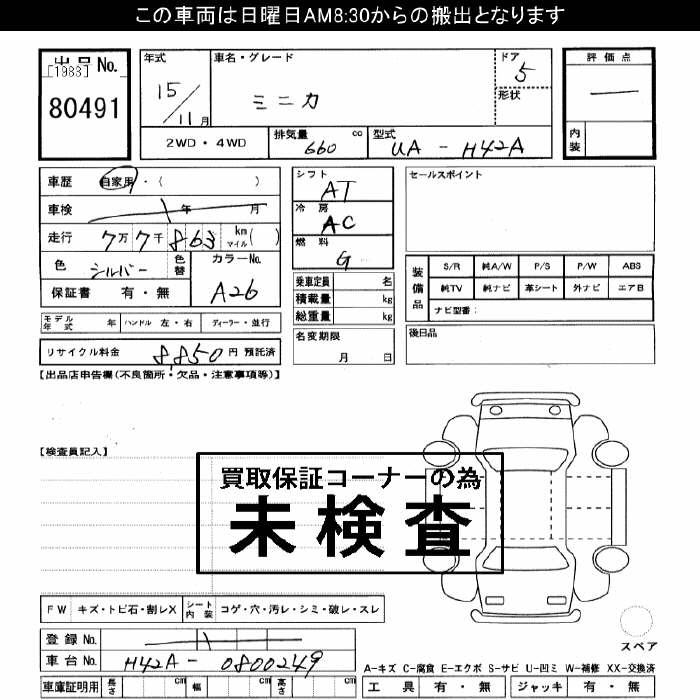 この車両は日曜日AM8:30からの搬出となります
出品No.
[1983]
80491
年式
15/11月
車名・グレード
ミニカ
ドア
5
形状
2WD・4WD
排気量
660 cc
型式
UA - H42A
評価点
―
内装
車歴 自家用・( )
車検 年 月
走行 7万7千863 km マイル( )
色 シルバー 色替
カラーNo.
A26
保証書 有・無
シフト
AT
冷房
AC
燃料
G
乗車定員 名
積載量 kg
総重量 kg
セールスポイント
装備品
S/R 純A/W P/S P/W ABS
純TV 純ナビ 革シート 外ナビ エアB
ナビ型番:
モデル年式 年 ハンドル 左・右 ディーラー・並行
名変期限
月 日
後日品
リサイクル料金 8,850円 預託済
【出品店申告欄(不良箇所・欠品・注意事項等)】
【検査員記入】
買取保証コーナーの為
未検査
FW キズ・トビ石・割レX シート内装 コゲ・穴・汚レ・シミ・破レ・スレ
登録No.
車台No. H42A - 0800249
車庫証明用 長さ cm 幅 cm 高さ cm
スペア
A-キズ C-腐食 E-エクボ S-サビ U-凹ミ W-補修 XX-交換済
工具 有・無 ジャッキ 有・無